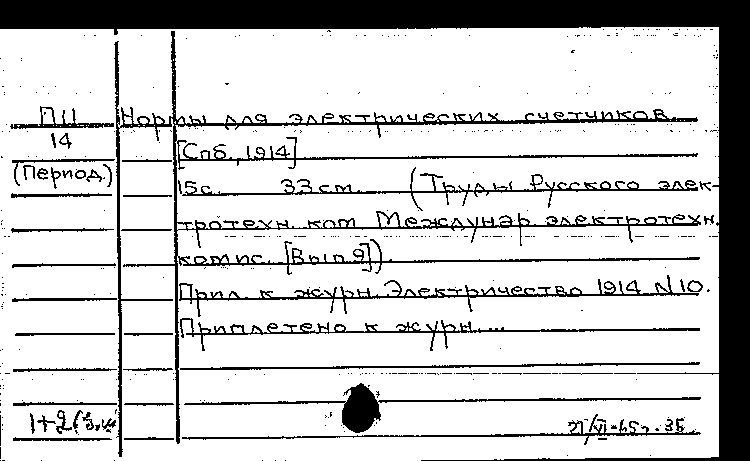 П11 Нормы для электрических счетчиков.
14 [Спб., 1914]
(Период.) 15с. 33см. (Труды Русского элек-
тротехн. ком Междунар электротехн.
комис. [Вып. 9]).
Прил. к журн. Электричество 1914 N10.
Приплетено к журн....